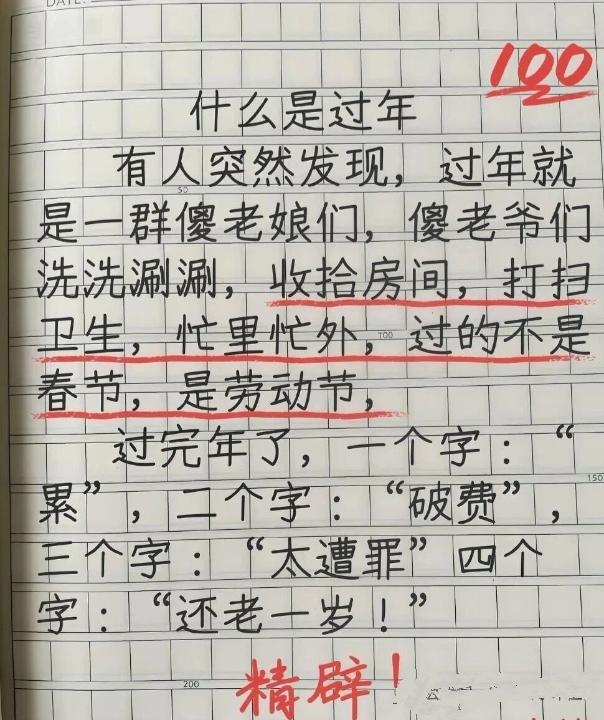 DATE:
100
什么是过年
有人突然发现，过年就
是一群傻老娘们，傻老爷们
洗洗涮涮，收拾房间，打扫
卫生，忙里忙外，过的不是
春节，是劳动节，
过完年了，一个字：“
累”，二个字：“破费”，
三个字：“太遭罪”四个
字：“还老一岁！”
50
100
150
200
精辟！